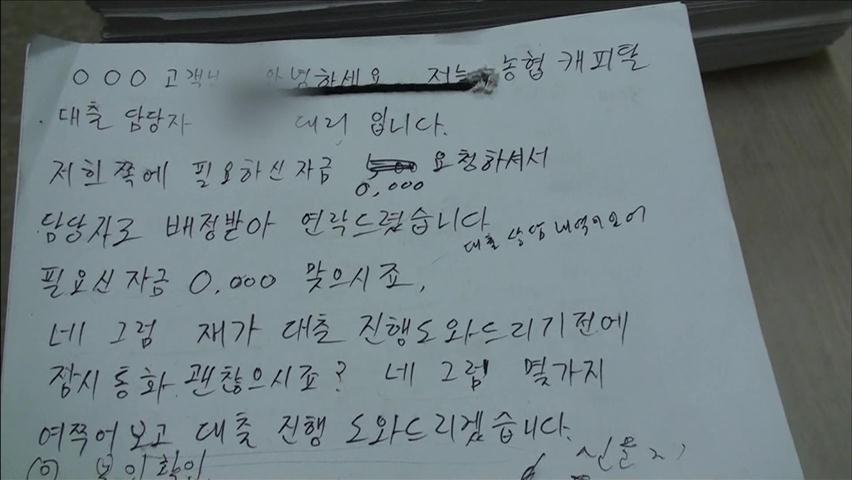 000 고객님 안녕하세요 저는 농협 캐피탈
대출 담당자 대리 입니다.
저희쪽에 필요하신자금 0,000 요청하셔서
담당자로 배정받아 연락드렸습니다
대출 상담 내역이요에
필요신자금 0,000 맞으시죠,
네 그럼 재가 대출 진행도와드리기전에
잠시통화 괜찮으시죠? 네 그럼 몇가지
여쭤어보고 대출 진행 도와드리겠습니다.
본인확인